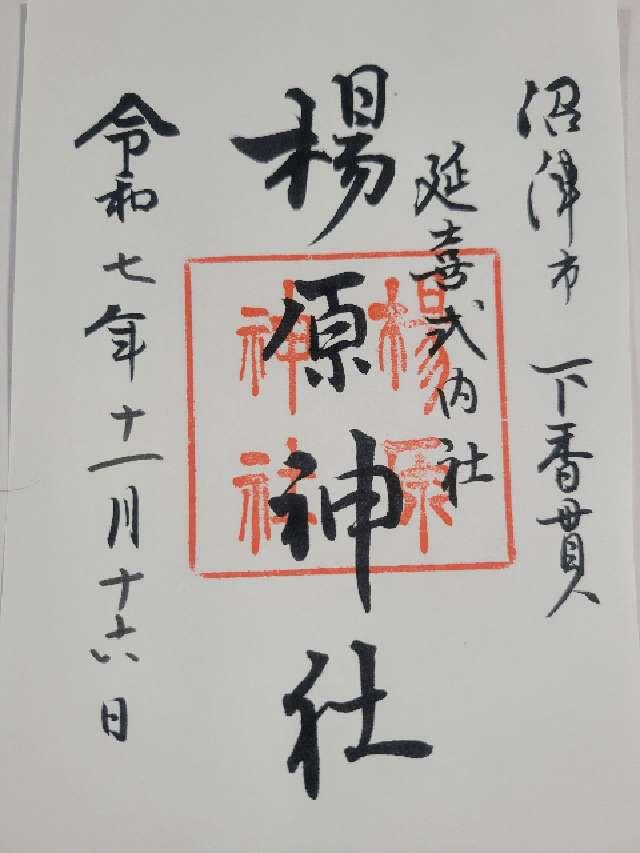 沼津市 下香貫
延喜式内社
楊原神社
楊原
神社
令和七年十一月十六日